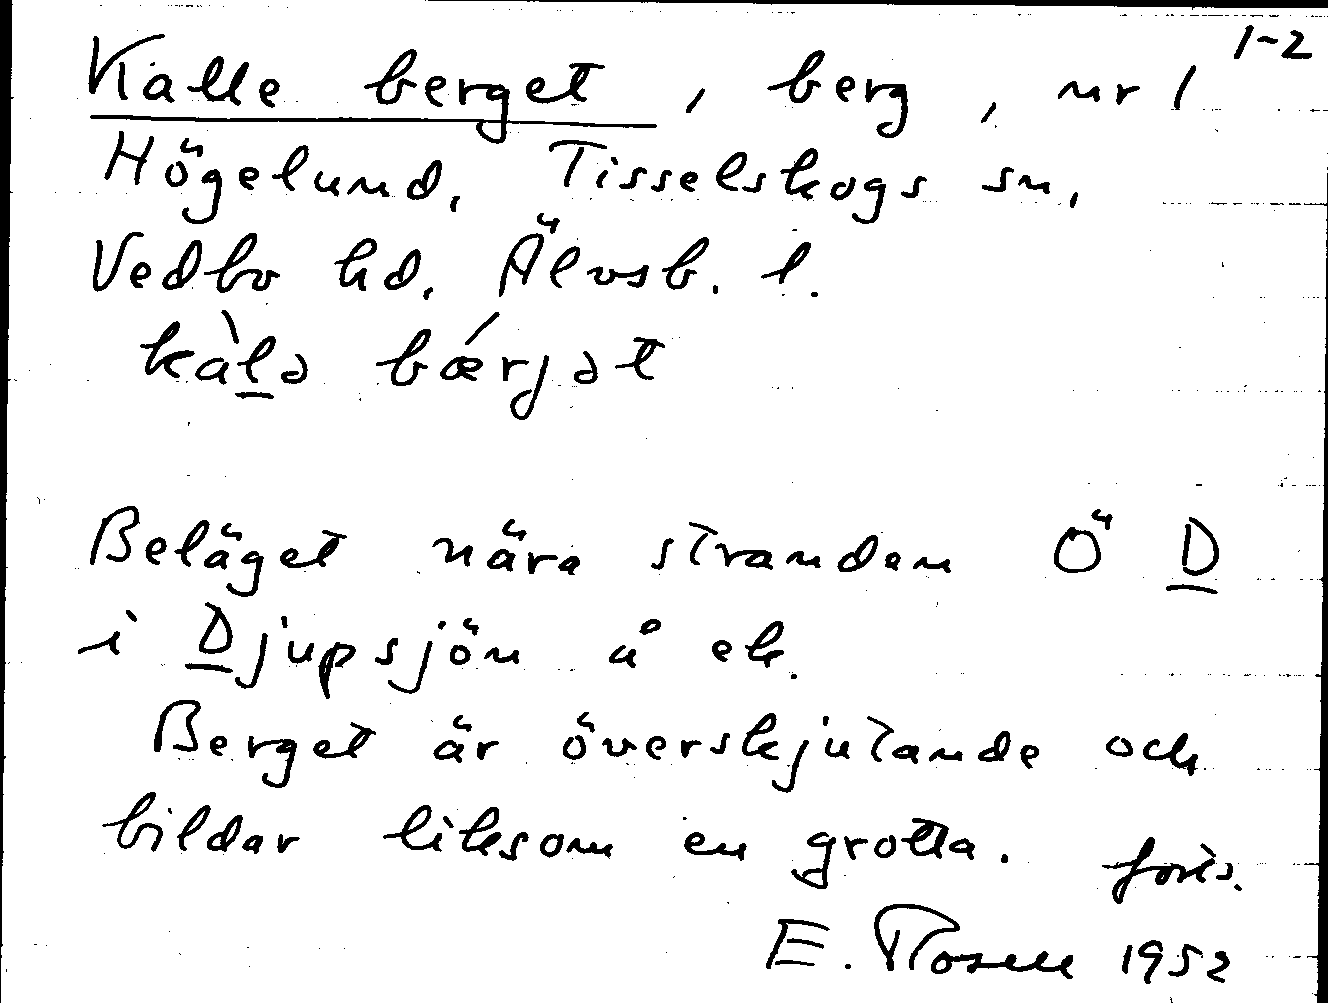 1-2
Kalle berget, berg, nr 1
Högelund, Tisselskogs sn,
Vedbo hd, Älvsb. l.
kàlə bǽrjət
Beläget nära stranden Ö D
i Djupsjön å ek.
Berget är överskjutande och
bildar liksom en grotta. forts.
E. Rosell 1952